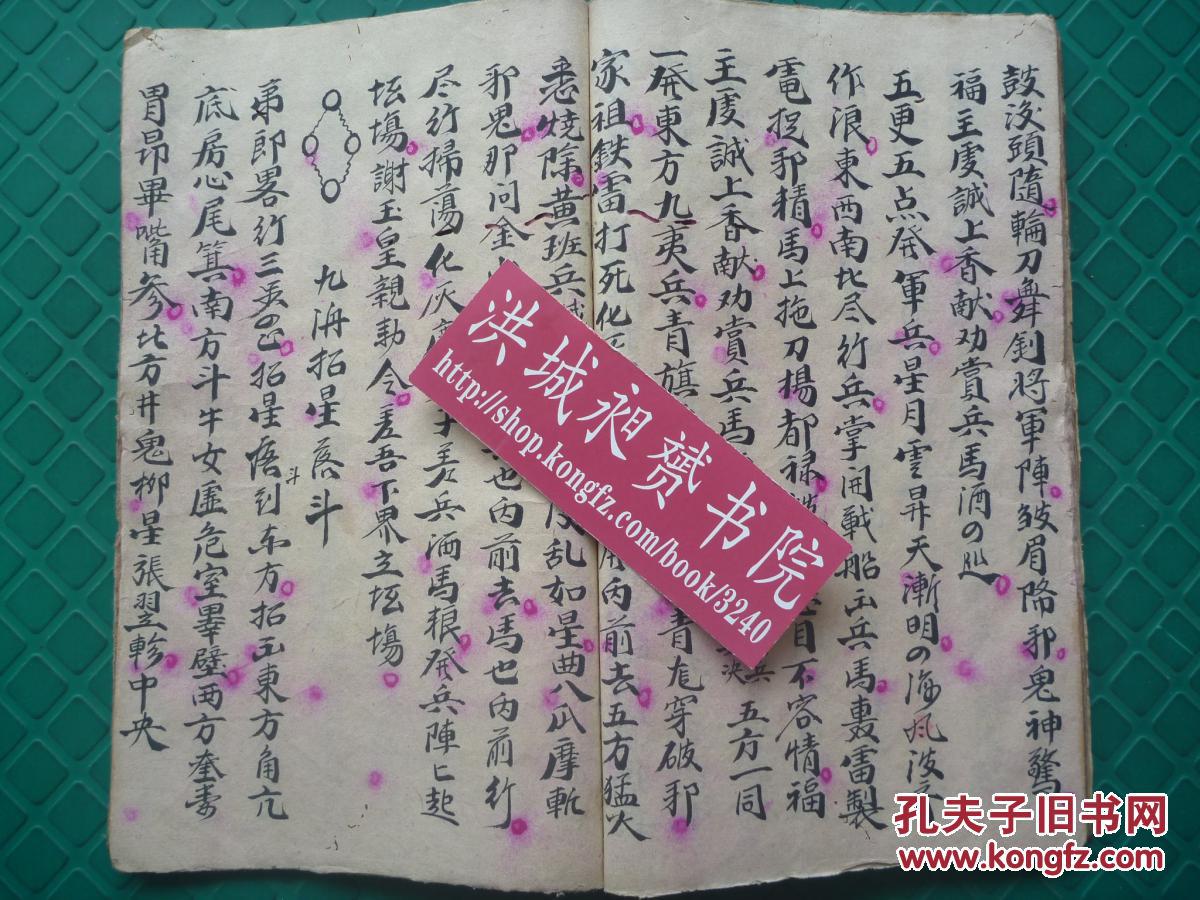 鼓没頭隨輪刀舞釗將軍陣皱眉降邪鬼神驚
福主虔誠上香献劝賞兵馬酒の巡
五更五点発軍兵星月雲昇天漸明の海风波
作浪東西南北尽行兵掌開戦船出兵馬轟雷製
電捉邪精馬上拖刀揚都禄 不容情福
主虔誠上香献劝賞兵馬 五方一同
一発東方九夷兵青旗 青 穿破邪
家祖鉄雷打死化 内前去五方猛火
悉燒除黄班兵 乱如星曲八瓜摩斬
邪鬼那问金 也内前去馬也内前行
尽行掃蕩化灰 差兵洒馬粮発兵陣上起
坛塲謝玉皇親勅令差吾下界立坛塲
九洲招星落斗
弟郎畧行三 招星 到东方招出東方角亢
斗
底房心尾箕南方斗牛女虛危室畢壁西方奎婁
胃昴畢嘴参北方井鬼柳星張翌軫中央
洪城昶赟书院
http://shop.kongfz.com/book/3240
孔夫子旧书网
www.kongfz.com